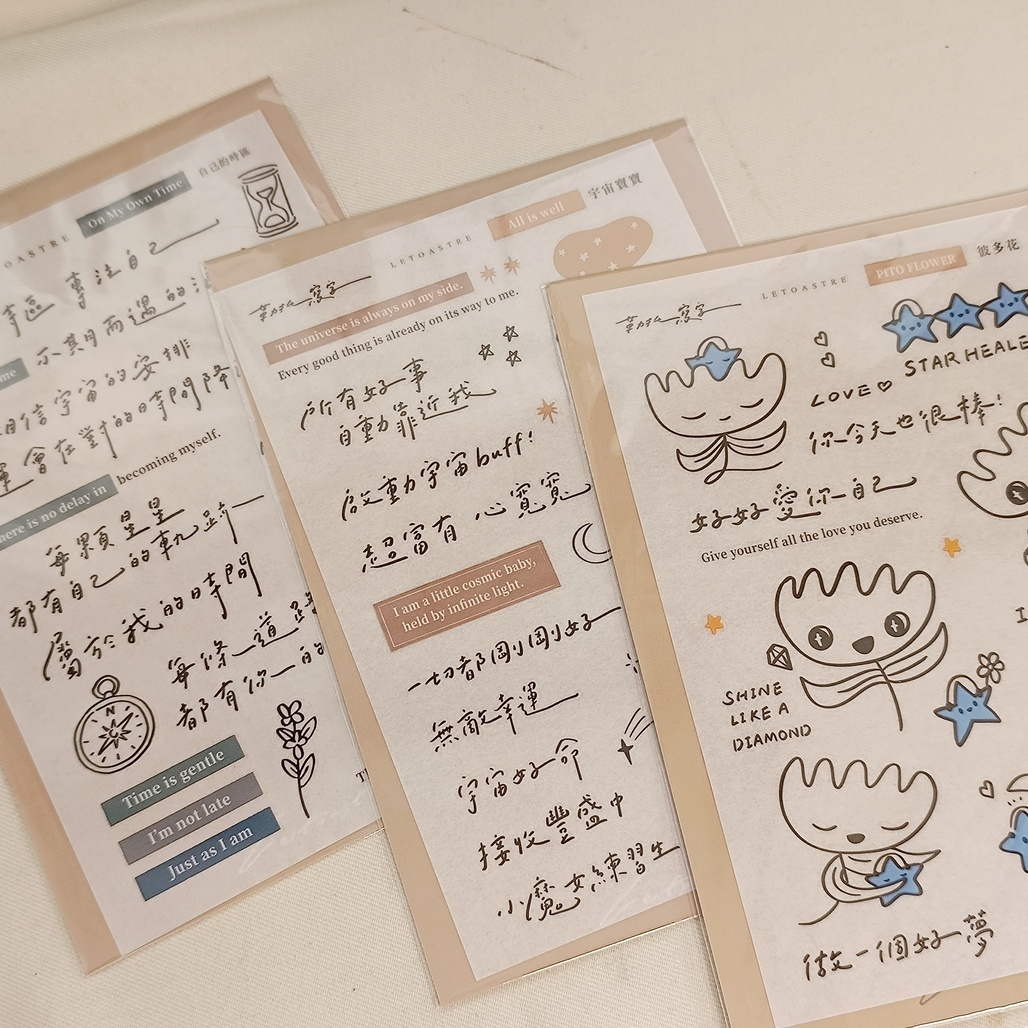 On My Own Time
自己的時區
專注自己
不其而遇的
相信宇宙的安排
會在對的時間降
here is no delay in
becoming myself.
每顆星星
都有自己的軌跡
屬於我的時間
每條道路
都有你的
N
Time is gentle
I'm not late
Just as I am
LETOASTRE
All is well
宇宙寶寶
寫字
The universe is always on my side.
Every good thing is already on its way to me.
所有好事
自動靠近我
啟動宇宙buff!
超富有 心寬寬
I am a little cosmic baby,
held by infinite light.
一切都剛剛好
無敵幸運
宇宙好命
接收豐盛中
小魔女練習生
LETOASTRE
PITO FLOWER
彼多花
寫字
STAR HEALE
LOVE
你今天也很棒!
好好愛你自己
Give yourself all the love you deserve.
SHINE
LIKE A
DIAMOND
做一個好夢